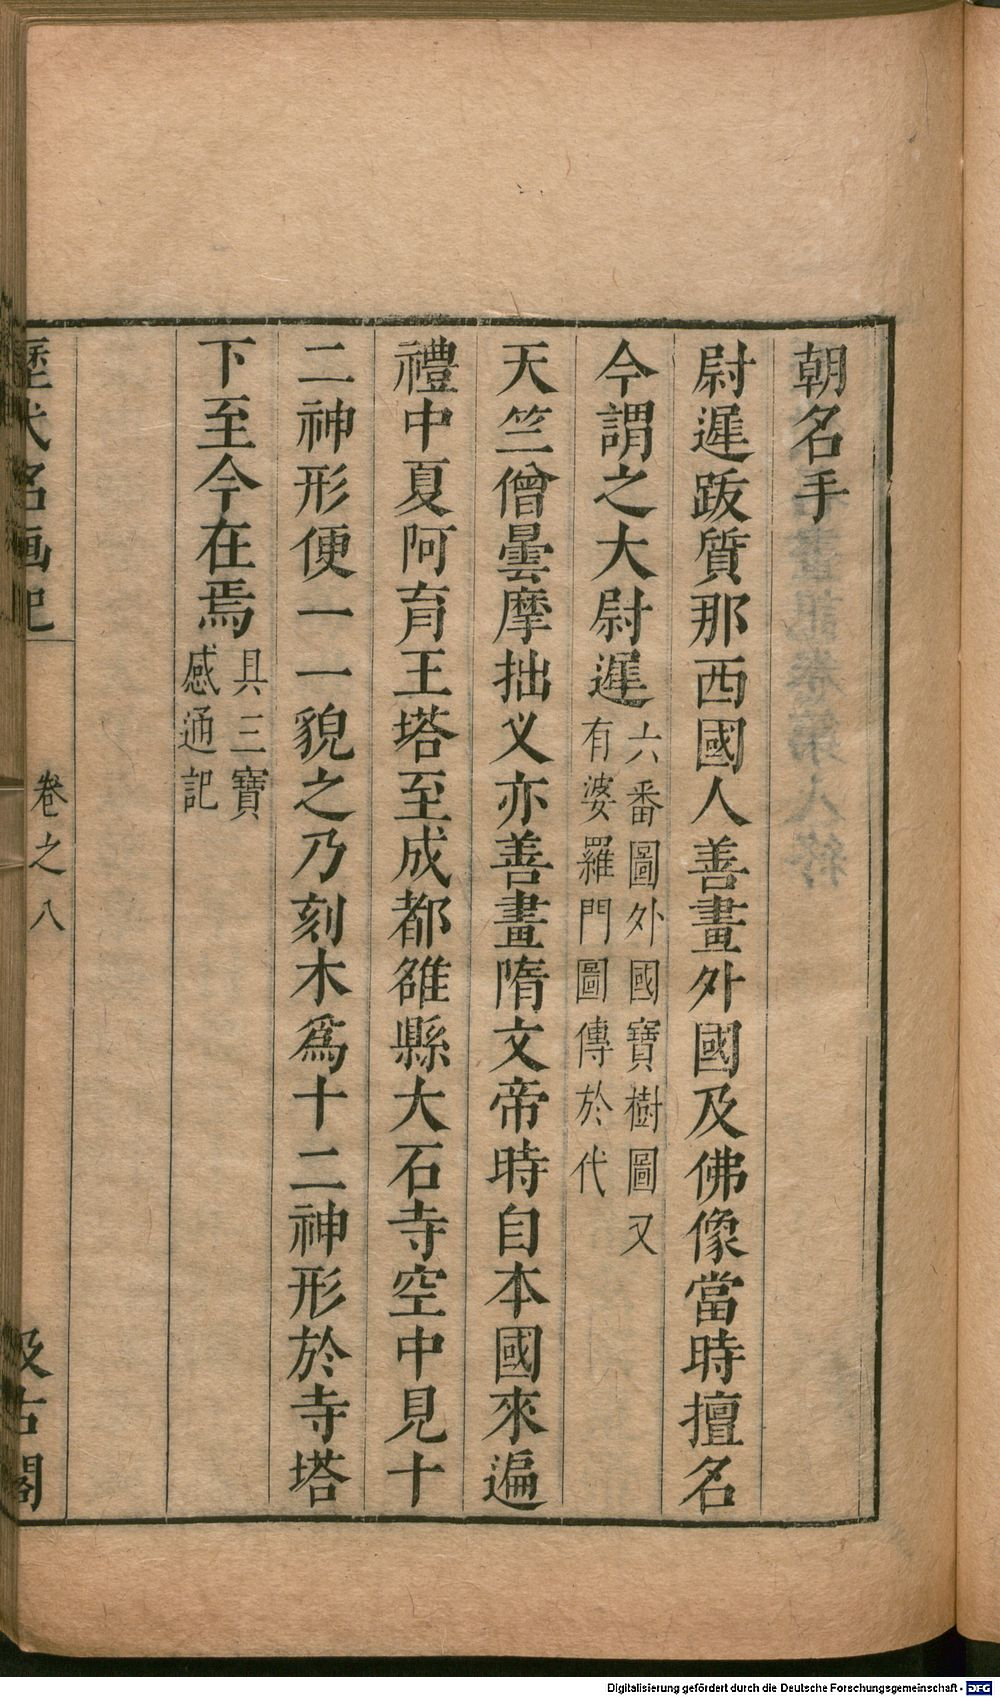 朝名手
尉遲跋質那西國人善畫外國及佛像當時擅名
今謂之大尉遲六番圖外國寶樹圖又
有婆羅門圖傳於代
天竺僧曇摩拙义亦善畫隋文帝時自本國來遍
禮中夏阿育王塔至成都雒縣大石寺空中見十
二神形便一一貌之乃刻木爲十二神形於寺塔
下至今在焉具三寶
感通記
歷代名画記
卷之八
汲古閣
Digitalisierung gefördert durch die Deutsche Forschungsgemeinschaft - DFG